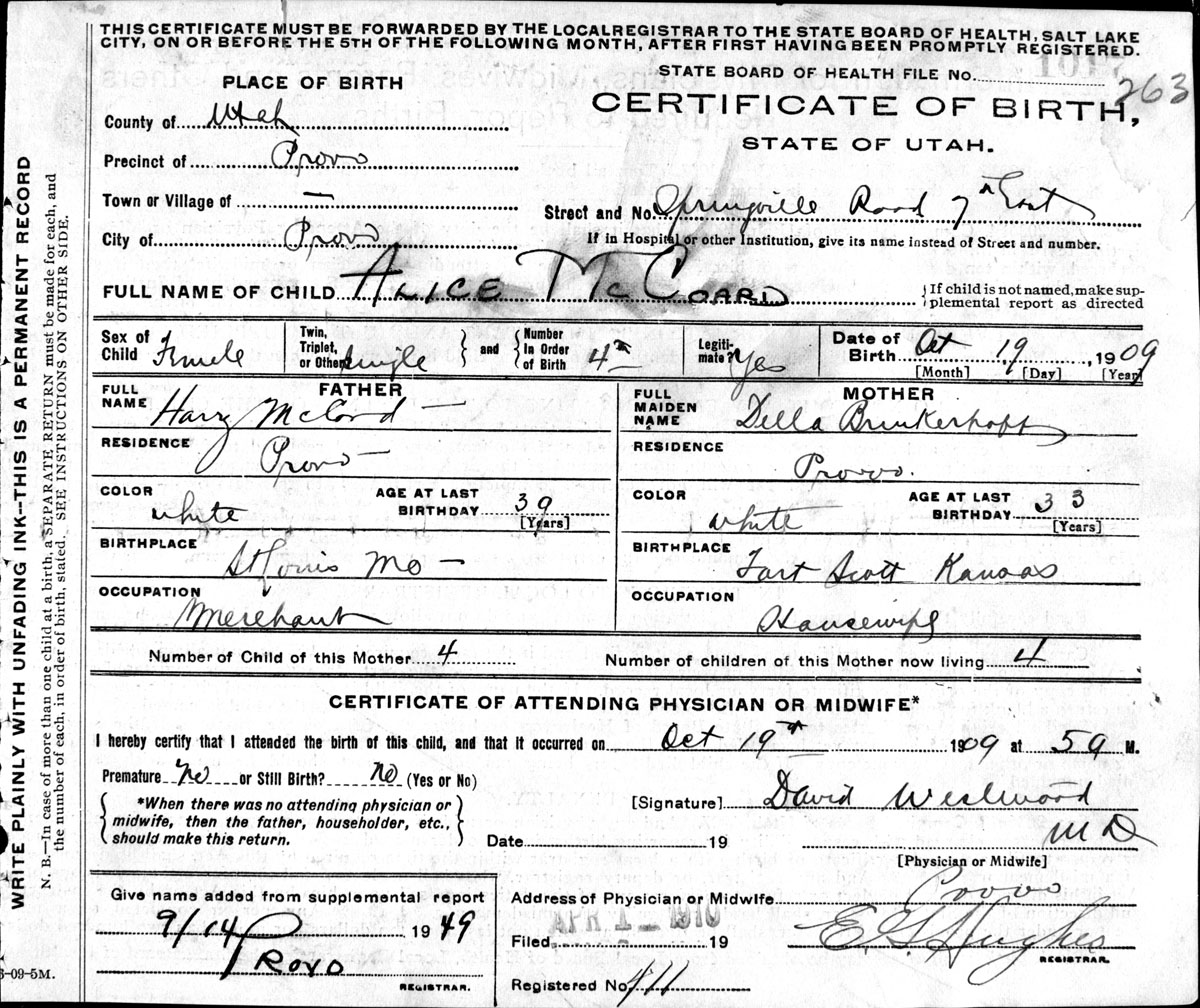 THIS CERTIFICATE MUST BE FORWARDED BY THE LOCALREGISTRAR TO THE STATE BOARD OF HEALTH, SALT LAKE
CITY, ON OR BEFORE THE 5TH OF THE FOLLOWING MONTH, AFTER FIRST HAVING BEEN PROMPTLY REGISTERED.
STATE BOARD OF HEALTH FILE No. 263
PLACE OF BIRTH
CERTIFICATE OF BIRTH,
STATE OF UTAH.
County of Utah
Precinct of Provo
Town or Village of —
Street and No. Springville Road 7th East
City of Provo
If in Hospital or other Institution, give its name instead of Street and number.
FULL NAME OF CHILD ALICE McCOARD
{If child is not named, make sup-
plemental report as directed
Sex of Child Female
Twin, Triplet, or Other Single } and { Number In Order of Birth 4th
Legiti-mate? Yes
Date of Birth Oct 19, 1909
[Month] [Day] [Year]
FATHER
FULL NAME Harry McCord —
MOTHER
FULL MAIDEN NAME Della Brinkerhoff
RESIDENCE Provo —
RESIDENCE Provo.
COLOR white
AGE AT LAST BIRTHDAY 39 [Years]
COLOR white
AGE AT LAST BIRTHDAY 33 [Years]
BIRTHPLACE St Louis Mo —
BIRTHPLACE Fort Scott Kansas
OCCUPATION Merchant
OCCUPATION Housewife
Number of Child of this Mother 4
Number of children of this Mother now living 4
CERTIFICATE OF ATTENDING PHYSICIAN OR MIDWIFE*
I hereby certify that I attended the birth of this child, and that it occurred on Oct 19th 1909 at 5 a M.
Premature No or Still Birth? No (Yes or No)
{*When there was no attending physician or
midwife, then the father, householder, etc.,
should make this return.}
[Signature] David Westwood
M D
Date 19
[Physician or Midwife]
Give name added from supplemental report
9/14 1949
Provo
REGISTRAR.
Address of Physician or Midwife Provo
Filed APR 1 1910 19
E G Hughes
REGISTRAR.
Registered No. 411
6-09-5M.
WRITE PLAINLY WITH UNFADING INK--THIS IS A PERMANENT RECORD
N. B.—In case of more than one child at a birth, a SEPARATE RETURN must be made for each, and
the number of each, in order of birth, stated. SEE INSTRUCTIONS ON OTHER SIDE.